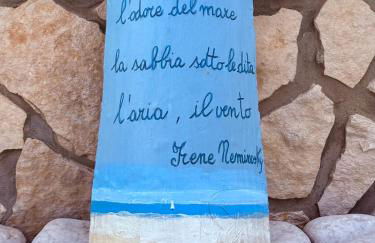 l'odore del mare
la sabbia sotto le dita
l'aria, il vento
Irene Nemirosky